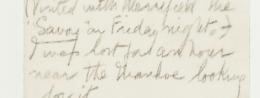 (Visited with Merrifield the
"Savoy" on Friday night, &
I was lost for an hour
near the looking
for it